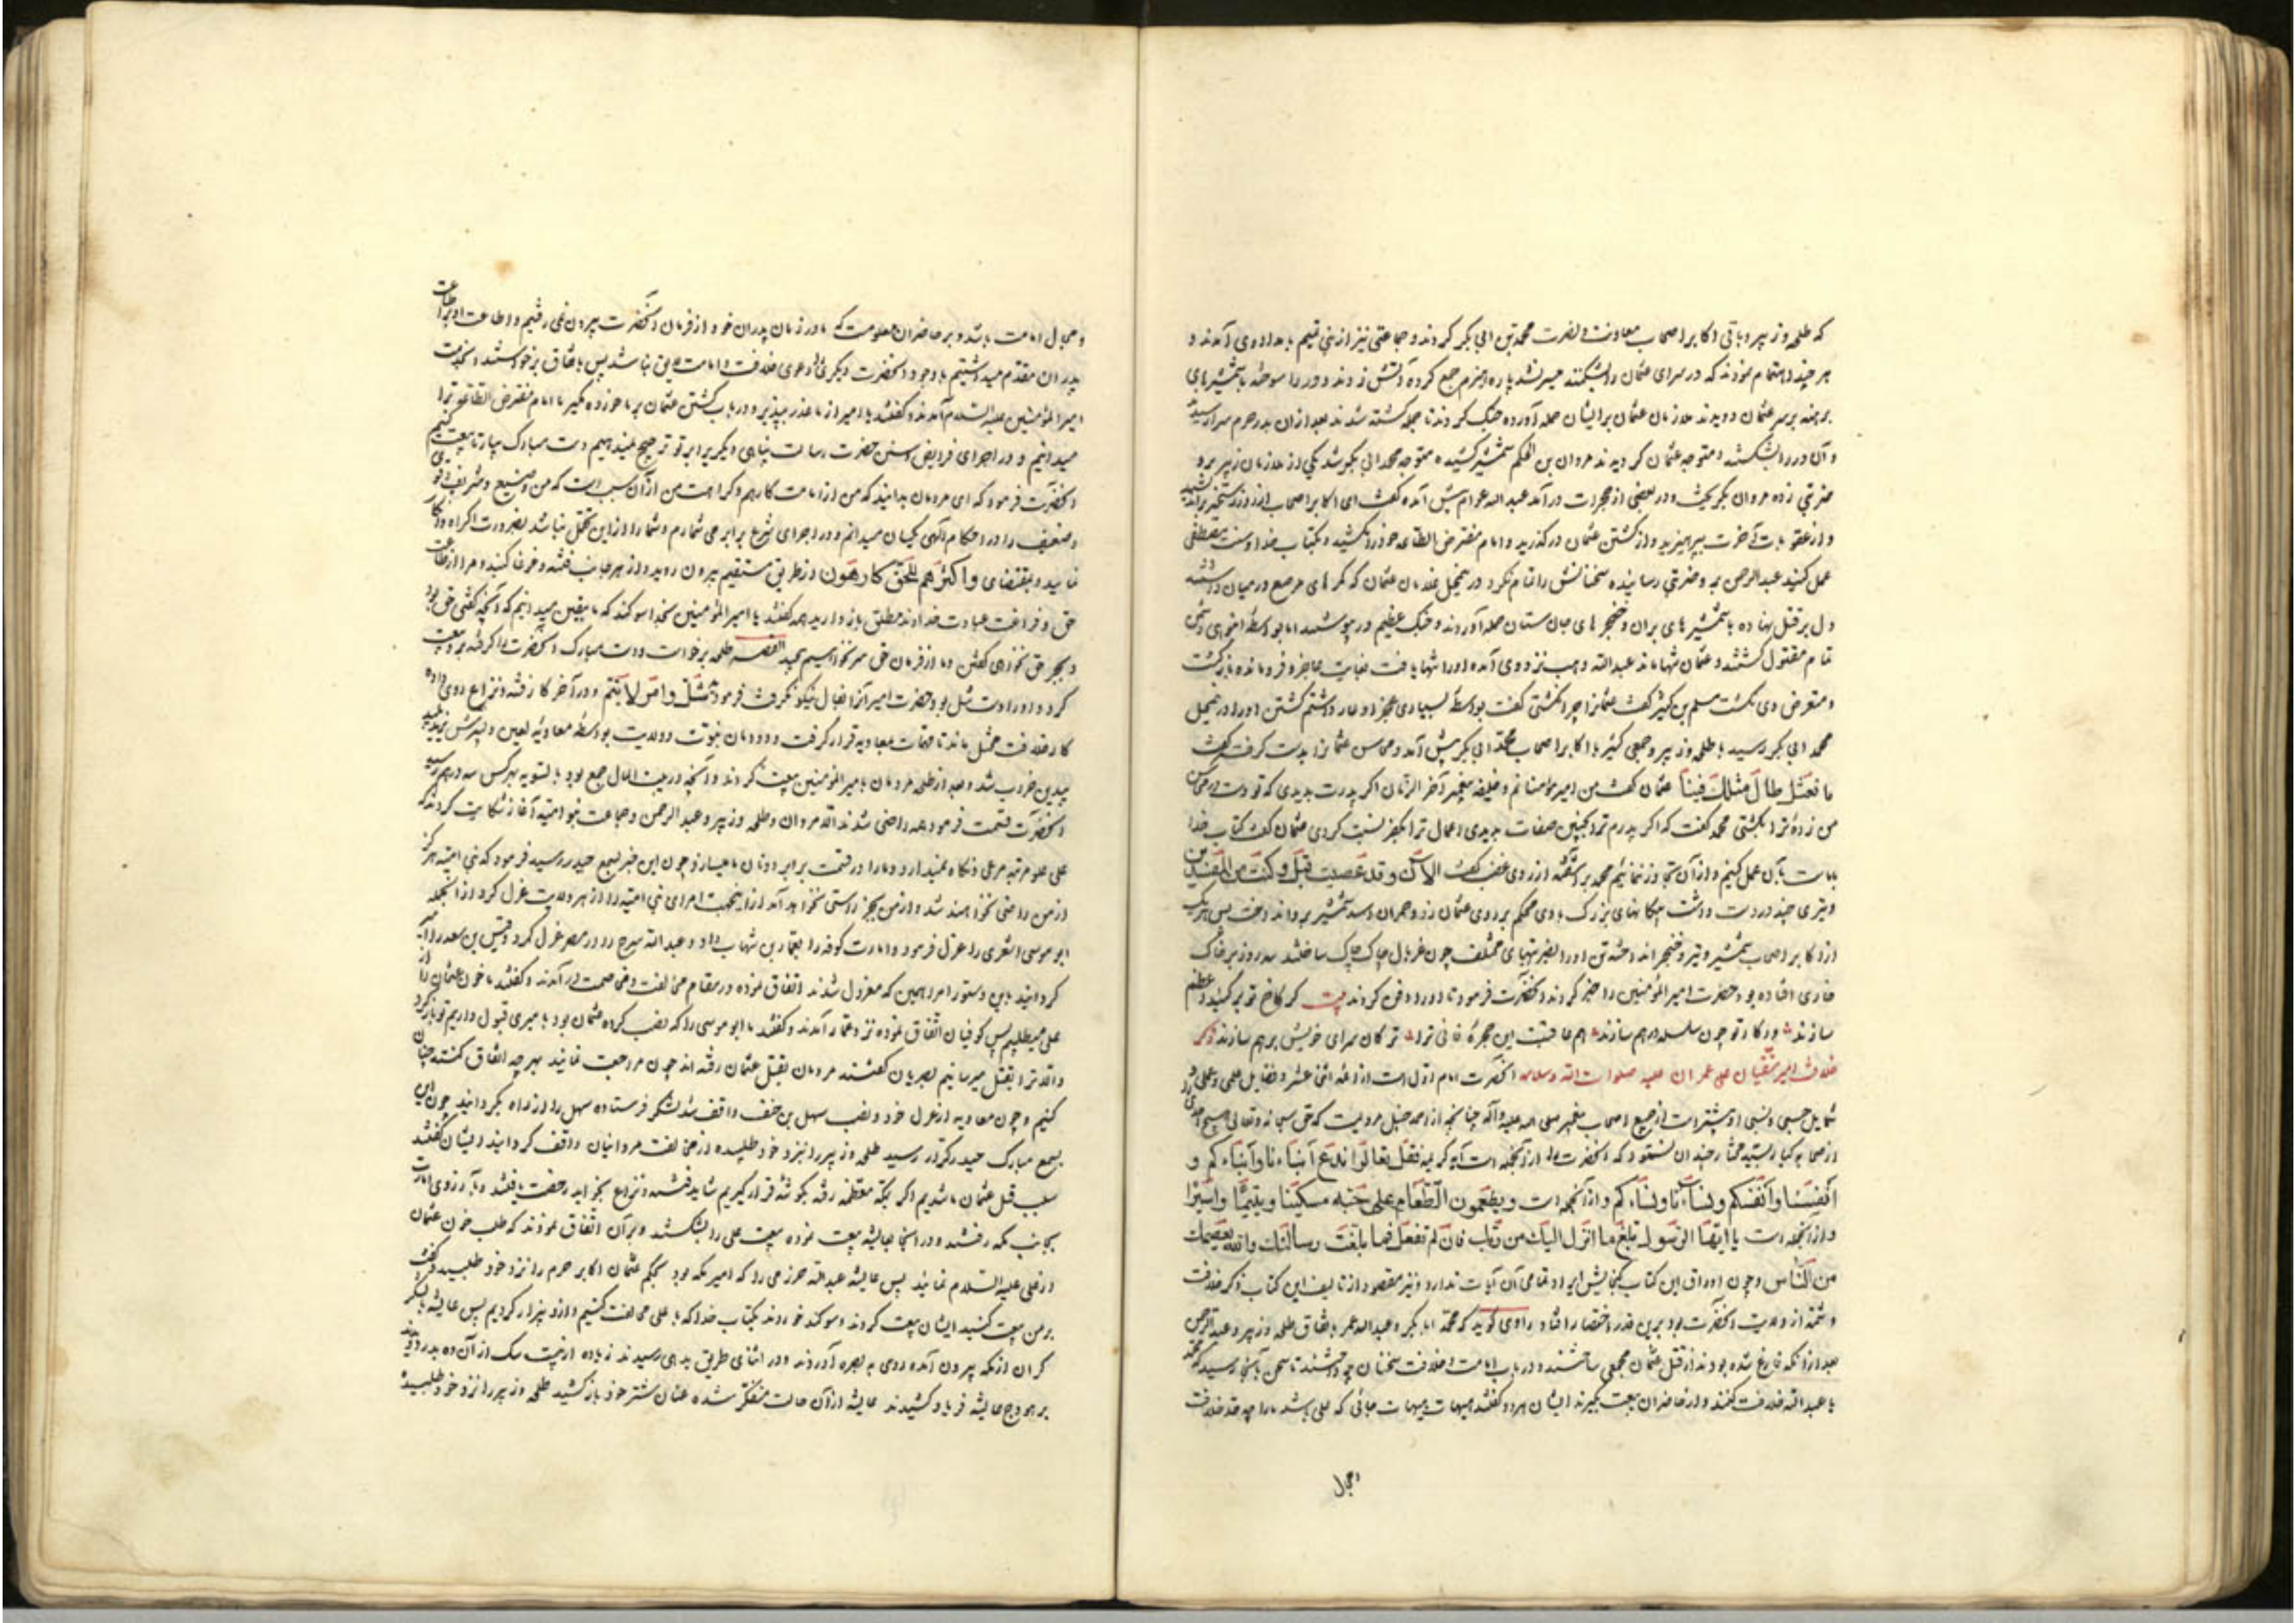 که طلحه و زبیر و باقی اکابر اصحاب معاونت و نصرت محمد بن ابی بکر کردند و جماعتی نیز از بنی تیم بامداد وی آمدند و
هر چند اهتمام نمودند که در سرای عثمان را بشکنند میسر نشد پاره هیزم جمع کرده آتش زدند و در را سوخته با شمشیرهای
برهنه بر سر عثمان دویدند ملازمان عثمان بر ایشان حمله آورده جنک کردند تا جمله کشته شدند بعد از ان بدر حرم سرا رسیده
و آن در را بشکسته متوجه عثمان کردیدند مروان بن الحکم شمشیر کشیده متوجه محمد ابی بکر شد یکی از ملازمان زبیر برو
ضربتی زده مروان بکریخت و در بعضی از حجرات در آمد عبد الله عوام پیش آمده کفت ای اکابر اصحاب از روز رستخیز
و از عقوبات آخرت بپرهیزید و از کشتن عثمان در کذرید و امام مفترض الطاعه خود را مکشید و بکتاب خدا و سنت مصطفی
عمل کنید عبد الرحمن برو ضربتی رسانیده سخنانش را تمام نکرد در این حال غلامان عثمان که کمرهای مرصع در میان داشته
دل بر قتل نهاده با شمشیرهای بران و خنجرهای جان ستان حمله آوردند و جنک عظیم در پیوستند اما بواسطه
تمام مقتول کشتند و عثمان تنها ماند عبد الله وهب نزد وی آمده او را تنها یافت بغایت عاجز و فرومانده بازکشت
و متعرض وی نکشت مسلم بن کثیر کفت عثمانرا چرا نکشتی کفت بواسطه بسیاری عجز او عار داشتم کشتن او را در این حال
محمد ابی بکر رسید با طلحه و زبیر و جمعی کثیر با اکابر اصحاب محمد ابی بکر پیش آمد و محاسن عثمانرا بدست کرفت کفت
ما نعثل طال مثلک فینا عثمان کفت من امیر مؤمنانم و خلیفه پیغمبر آخر الزمان اکر پدرت بدیدی که تو دست
من زده ترا بکشتی محمد کفت که اکر پدرم ترا بچنین صفات بدیدی و اعمال ترا بکفر نسبت کردی عثمان کفت کتاب خدا
بیان عمل کنیم و از آن تجاوز ننمائیم محمد بر آشفته از روی غضب کفت الان وقد عصیت قبل وکنت من المفسدین
و تیری چند در دست داشت پیکانهای بزرک بادی محکم بر روی عثمان زد و حمران اسد شمشیر برو انداخت پس هر یک
از اکابر اصحاب شمشیر و تیر و خنجر انداخته تن او را بضربتهای مختلف چون غربال چاک چاک ساختند سه روز بر خاک
خاری افتاده بود حضرت امیر المؤمنین را خبر کردند آنحضرت فرمود تا او را دفن کردند بیت کر کاخ تو بر کنبد اعظم
سازند در کار تو چون سلسله درهم سازند هم عاقبت این حجره فانی ترا ترکان سرای خویش برهم سازند ذکر
خلافت امیر متقیان علی عمران علیه صلوات الله وسلامه آنحضرت امام اول است از ائمه اثنا عشر و فضایل علمی و عملی
شمایل حسبی و نسبی او بیشتر است از جمیع اصحاب پیغمبر صلی الله علیه وآله چنانچه از احمد حنبل مرویست که حق سبحانه وتعالی هیچ احد
از صحابه کبار سید مختار چندان نستود که آنحضرت را از آنجمله است آیه کریمه فقل تعالوا ندع ابناءنا وابناءکم و
انفسنا وانفسکم ونساءنا ونساءکم و از آنجمله است ویطعمون الطعام علی حبه مسکینا ویتیما واسیرا
و از آنجمله است یا ایها الرسول بلغ ما انزل الیک من ربک فان لم تفعل فما بلغت رسالتک والله یعصمک
من الناس و چون اوراق این کتاب کنجایش ایراد تمامی آن آیات ندارد و نیز مقصود از تالیف این کتاب ذکر خلافت
و شمه از ولایت آنحضرت بود برین قدر اختصار افتاد راوی کوید که محمد ابا بکر و عبد الله عمر باتفاق طلحه و زبیر و عبد الرحمن
بعد از آنکه فارغ شده بودند از قتل عثمان مجمعی ساختند و در باب امامت و خلافت سخنان می کفتند تا سخن بآنجا رسید که محمد
با عبد الله خلافت کنند و از حاضران بیعت بکیرند ایشان هر دو کفتند هیهات هیهات جائی که علی باشد ما را چه حد خلافت
و مجال
و مجال امامت باشد و بر حاضران معلومست که ما در زمان پدران خود از فرمان آنحضرت بیرون نمی رفتیم و اطاعت او بر اطاعت
پدران مقدم میداشتیم با وجود آنحضرت دیکری را دعوی خلافت و امامت لایق نباشد پس باتفاق برخواستند بخدمت
امیر المؤمنین علیه السلام آمدند و کفتند یا امیر از ما عذر بپذیر و در باب کشتن عثمان بر ما خورده مکیر ما امام مفترض الطاعه ترا
میدانیم و در اجرای فرایض و سنن حضرت رسالت پناهی دیکریرا بر تو ترجیح نمینهیم دست مبارک بیار تا بیعت کنیم
آنحضرت فرمود که ای مردمان بدانید که من از امامت کارهم و کراهت من از آن سبب است که من وضیع و شریف و قوی
و ضعیف را در احکام الهی یکسان میدانم و در اجرای شرع برابر می شمارم و شما را از این تحمل نباشد بضرورت اکراه و انکار
نمایید و بمقتضای واکثرهم للحق کارهون از طریق مستقیم بیرون روید و از هر جانب فتنه و غوغا کنید و مرا از طاعت
حق و فراغت عبادت خداوند مطلق باز دارید همه کفتند یا امیر المؤمنین بخدا سوکند که ما بیقین میدانیم که آنچه کفتی حق بود
و بجز حق نخواهی کفتن و ما از فرمان حق سر نخواهیم پیچید القصه طلحه برخاست و دست مبارک آنحضرت را کرفته برو بیعت
کرد و او را دست شل بود حضرت امیر آنرا بفال نیکو نکرفت فرمود شل وامر لا یتم و در آخر کار فتنه و نزاع روی داده
کار خلافت مختل ماند تا مهمات بمعاویه قرار کرفت و دودمان نبوت و ولایت بواسطه معاویه لعین و پسرش یزید پلید
بیدین خراب شد و بعد از طلحه مردمان با میر المؤمنین بیعت کردند و آنچه در بیت المال جمع بود بالسویه بهر کس سه درهم رسید
آنحضرت قسمت فرمود همه راضی شدند الا مروان و طلحه و زبیر و عبد الرحمن و جماعت بنو امیه آغاز شکایت کردند که
علی علو مرتبه مرعی و نکاه نمیدارد و ما را در قسمت برابر ادنان ما میسازد چون این خبر بسمع حیدر رسید فرمود که بنی امیه هرکز
از من راضی نخواهند شد و از من بجز راستی نخواهد آمد از اینجهت امرای بنی امیه را از هر ولایت عزل کرد از آنجمله
ابو موسی اشعری را عزل فرمود و امارت کوفه را بعمار بن شهاب داد و عبد الله سرح را در مصر عزل کرد و قیس بن سعد را
کردانید باین دستور امرا همین که معزول شدند اتفاق نموده در مقام مخالفت و مخاصمت در آمدند و کفتند ما خون عثمان را از
علی میطلبیم پس کوفیان اتفاق نموده نزد عمار آمدند و کفتند ما ابو موسی را که نصب کرده عثمان بود بامیری قبول داریم تو بازکرد
و الا ترا بقتل میرسانیم بصریان کفتند مردمان بقتل عثمان رفته اند چون مراجعت نمایند بهر چه اتفاق کنند چنان
کنیم و چون معاویه از عزل خود و نصب سهل بن حنف واقف شد لشکر فرستاده سهل را از راه بکردانید چون این
بسمع مبارک حیدر کرار رسید طلحه و زبیر را نزد خود طلبیده از مخالفت مروانیان واقف کردانید ایشان کفتند
سبب قتل عثمان ما شدیم اکر بمکه معظمه رفته بکوشه قرار کیریم شاید فتنه و نزاع بخوابد رخصت یافتند و بآرزوی امارت
بجانب مکه رفتند و در آنجا بعایشه بیعت نموده بیعت علی را بشکستند و بر آن اتفاق نمودند که طلب خون عثمان
از علی علیه السلام نمایند پس عایشه عبد الله حزرمی را که امیر مکه بود بحکم عثمان اکابر حرم را نزد خود طلبید و کفت
بر من بیعت کنید ایشان بیعت کردند و سوکند خوردند بکتاب خدا که با علی مخالفت کنیم و از و بیزار کردیم پس عایشه با لشکر
کران از مکه بیرون آمده روی به بصره آوردند و در اثنای طریق بدهی رسیدند زیاده از بیست سک از آن ده بدر دویدند
بر هودج عایشه فریاد کشیدند عایشه از آن حالت متفکر شده عنان شتر خود باز کشید طلحه و زبیر را نزد خود طلبیده